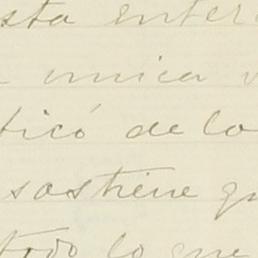 sta enter
unica v
ticó de lo
sostiene qu
todo lo que